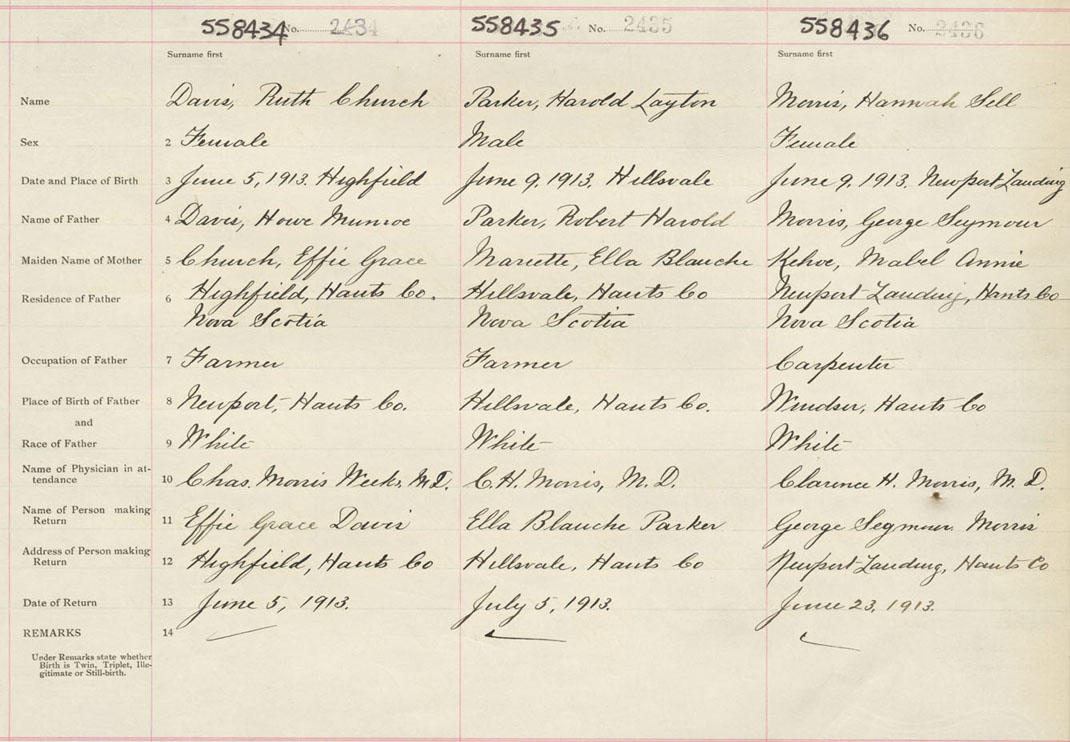 558434 No. 2434 558435 No. 2435 558436 No. 2436
Surname first Surname first Surname first
Name Davis, Ruth Church Parker, Harold Layton Morris, Hannah Sell
Sex 2 Female Male Female
Date and Place of Birth 3 June 5, 1913. Highfield June 9, 1913, Hillsvale June 9, 1913, Newport Landing
Name of Father 4 Davis, Howe Munroe Parker, Robert Harold Morris, George Seymour
Maiden Name of Mother 5 Church, Effie Grace Mariette, Ella Blanche Kehoe, Mabel Annie
Residence of Father 6 Highfield, Hants Co. Hillsvale, Hants Co Newport Landing, Hants Co
Nova Scotia Nova Scotia Nova Scotia
Occupation of Father 7 Farmer Farmer Carpenter
Place of Birth of Father 8 Newport, Hants Co. Hillsvale, Hants Co. Windsor, Hants Co
and
Race of Father 9 White White White
Name of Physician in at-
tendance 10 Chas. Morris Weeks, M.D. C.H. Morris, M.D. Clarence H. Morris, M.D.
Name of Person making
Return 11 Effie Grace Davis Ella Blanche Parker George Segmour Morris
Address of Person making
Return 12 Highfield, Hants Co Hillsvale, Hants Co Newport Landing, Hants Co
Date of Return 13 June 5, 1913. July 5, 1913. June 23, 1913.
REMARKS 14
Under Remarks state whether
Birth is Twin, Triplet, Ille-
gitimate or Still-birth.